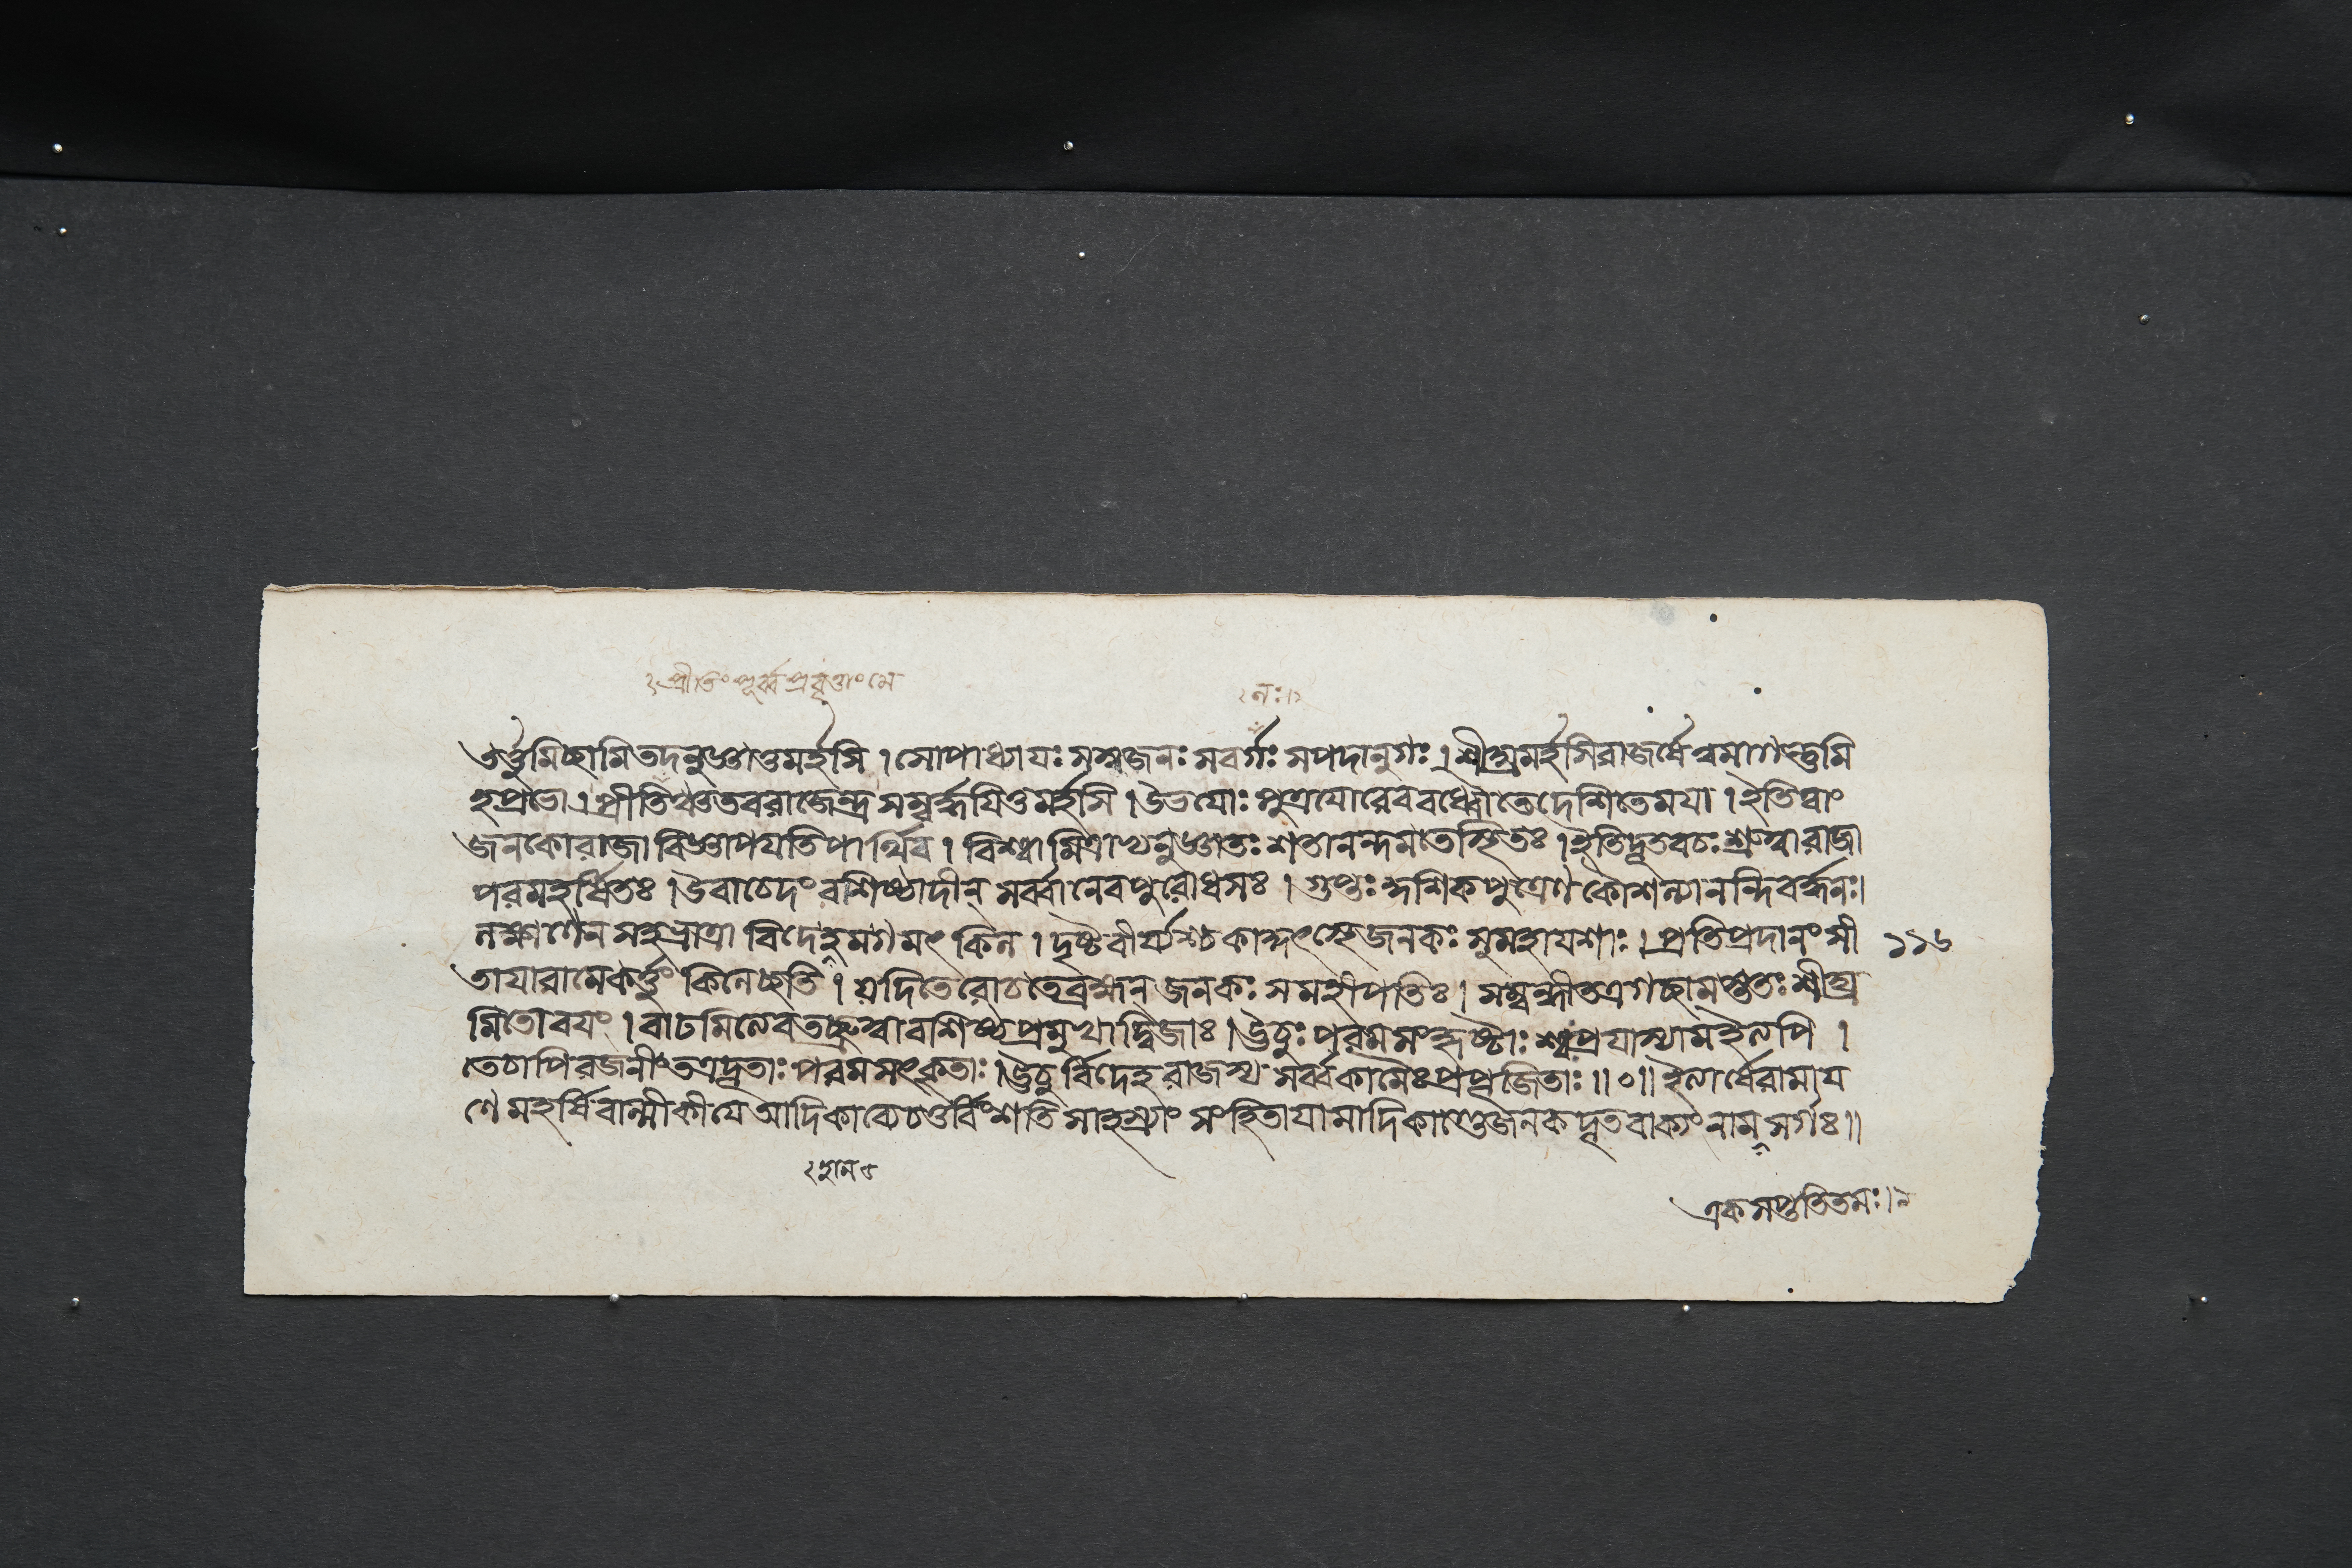 প্রীতিং পূর্ব্বপ্রবৃত্তাং মে
নঃ।
তর্ত্তুমিচ্ছামিতদনুজ্ঞাতুমর্হসি । সোপাধ্যাযঃ সস্বজনঃ সবর্গঃ সপদানুগঃ । শীঘ্রমর্হসিরাজর্ষে ত্বমাগন্তুমি
হপ্রভো । প্রীতিঞ্চতবরাজেন্দ্র সম্বর্দ্ধযিতুমর্হসি । উভযোঃ পুত্রযোরেববধ্বৌতেদেশিতেমযা । ইতিত্বাং
জনকোরাজা বিজ্ঞাপযতিপার্থিব । বিশ্বামিত্রাভ্যনুজ্ঞাতঃ শতানন্দমতেস্থিতঃ । ইতিদূতবচঃ শ্রুত্বারাজা
পরমহর্ষিতঃ । উবাচেদং বশিষ্ঠাদীন্ সর্ব্বানেবপুরোধসঃ । গুপ্তঃ কুশিকপুত্রেণ কৌশল্যানন্দিবর্দ্ধনঃ।
লক্ষ্মণেন সহভ্রাত্রা বিদেহমগমৎ কিল । দৃষ্টবীর্য্যশ্চকাকুৎস্থেজনকঃ সুমহাযশাঃ । প্রতিপ্রদানং সী ১১৬
তাযারামেকর্ত্তুং কিলেচ্ছতি । যদিতেরোচতেব্রহ্মন্ জনকঃ সমহীপতিঃ । সম্বন্ধীতত্রগচ্ছামস্ততঃ শীঘ্র
মিতোবযং । বাঢমিত্যেবতচ্ছ্রুত্বাবশিষ্ঠপ্রমুখাদ্বিজাঃ । ঊচুঃ পরমসংহৃষ্টাঃ শ্বঃপ্রযাস্যামইত্যপি ।
তেচাপিরজনীং তত্রদূতাঃ পরমসৎকৃতাঃ । ঊচুর্বিদেহরাজস্য সর্ব্বকামৈঃপ্রপূজিতাঃ ॥০॥ ইত্যার্ষেরামায
ণে মহর্ষিবাল্মীকীযে আদিকাব্যে চতুর্বিংশতি সাহস্র্যাং সংহিতাযামাদিকাণ্ডেজনকদূতবাক্যং নাম সর্গঃ॥
একসপ্ততিতমঃ।